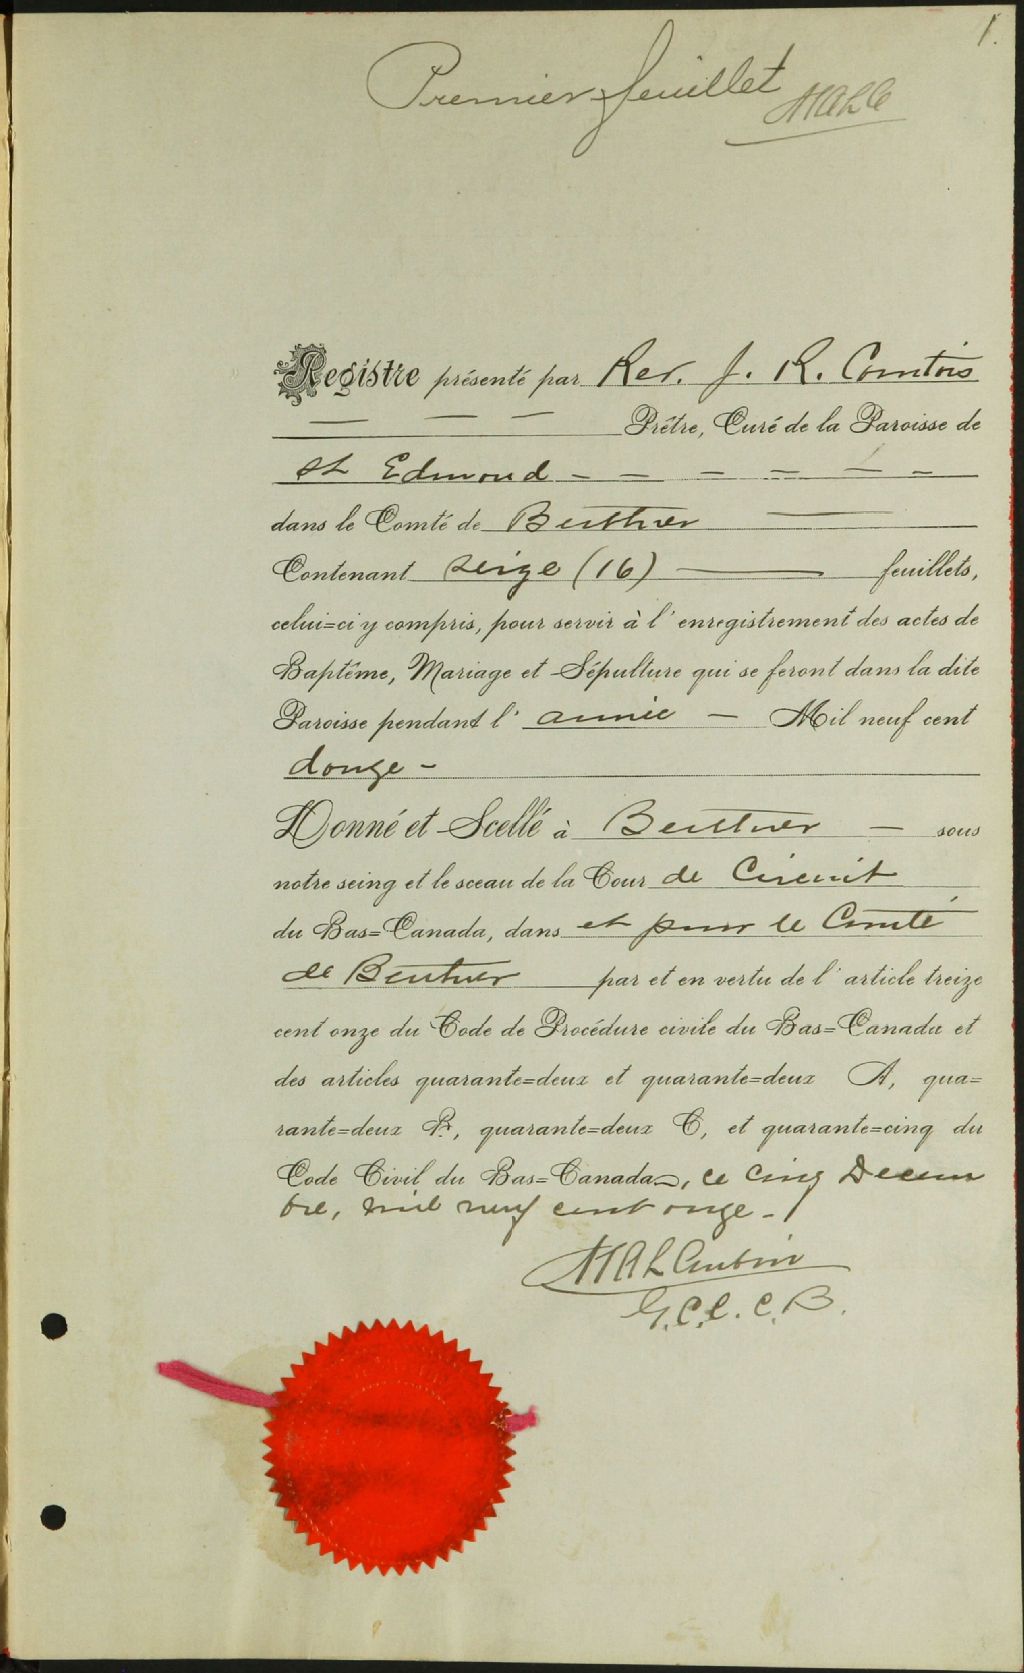 1.
Premier feuillet
Registre présenté par Rev. J. R. Comtois
— — — Prêtre, Curé de la Paroisse de
St Edmond — — — — — —
dans le Comté de Berthier —
Contenant seize (16) — feuillets,
celui=ci y compris, pour servir à l'enregistrement des actes de
Baptême, Mariage et Sépulture qui se feront dans la dite
Paroisse pendant l'année — Mil neuf cent
douze -
Donné et Scellé à Berthier — sous
notre seing et le sceau de la Cour de Circuit
du Bas=Canada, dans et pour le Comté
de Berthier par et en vertu de l'article treize
cent onze du Code de Procédure civile du Bas=Canada et
des articles quarante=deux et quarante=deux A, qua=
rante=deux B, quarante=deux C, et quarante=cinq du
Code Civil du Bas=Canada, ce cinq Decem
bre, mil neuf cent onze. -
HALAubin
G.C.C.C.B.